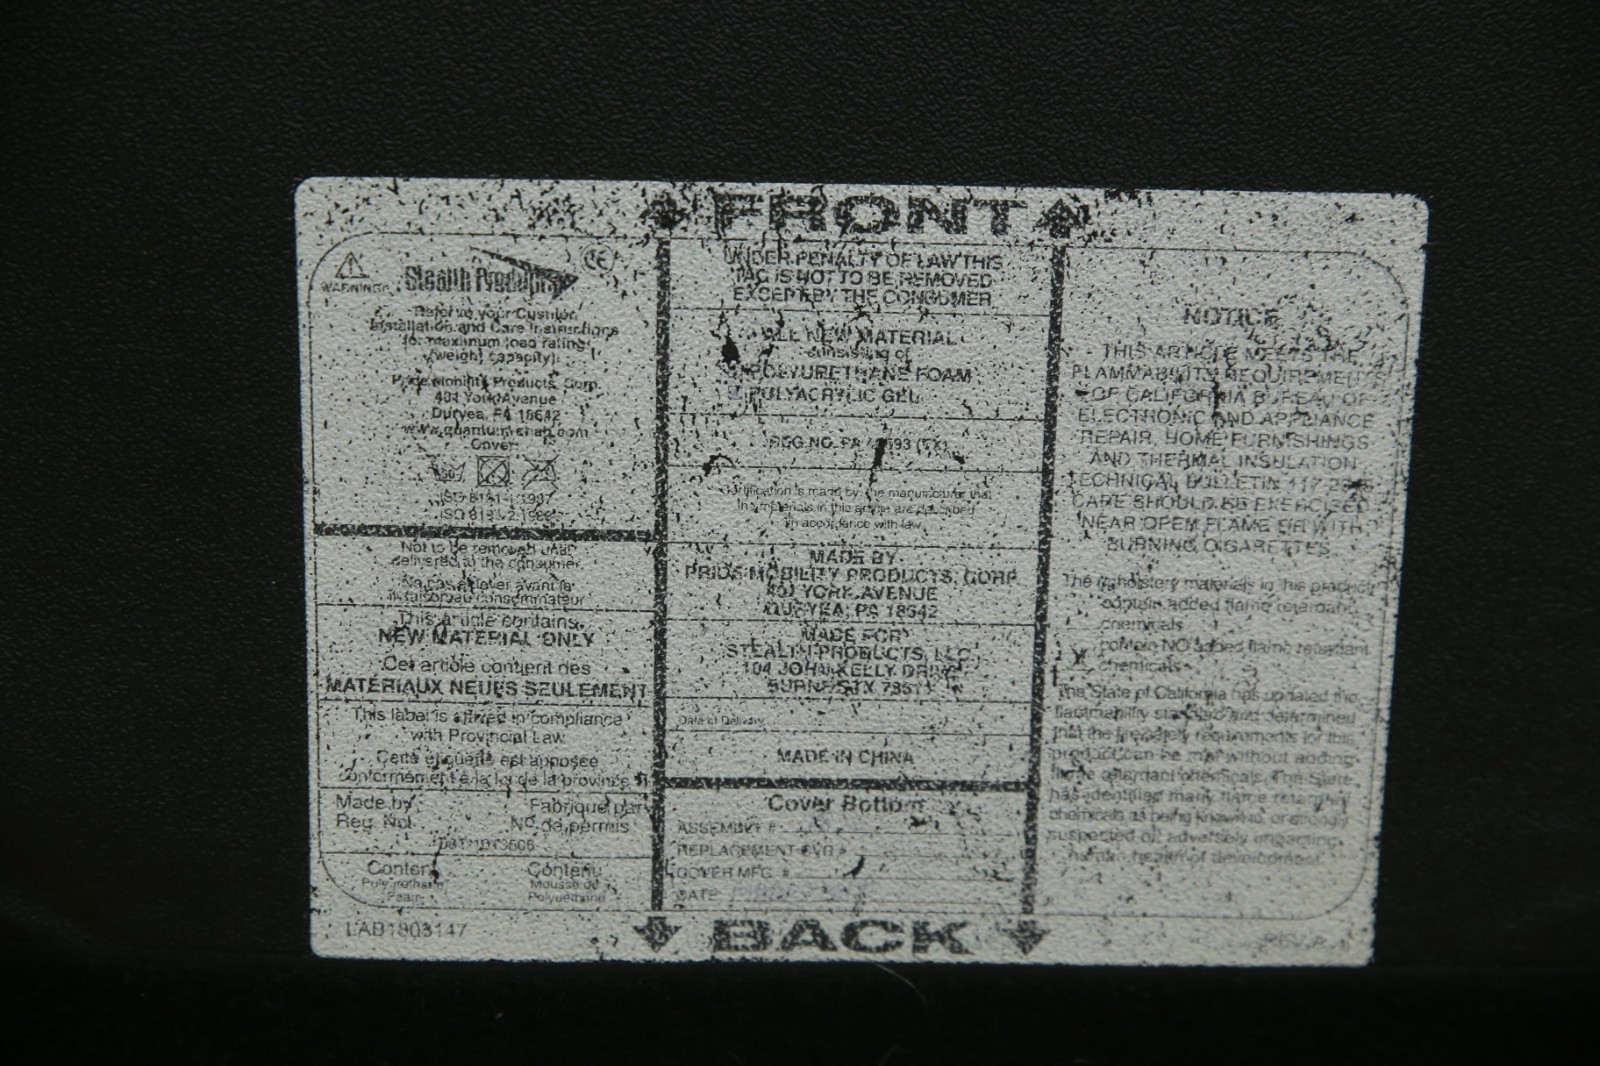 FRONT
WARNING!
Stealth Products
CE
Refer to your Cushion
Installation and Care Instructions
for maximum load rating
(weight capacity).
Pride Mobility Products Corp.
401 York Avenue
Duryea, PA 18642
www.quantumrehab.com
Cover:
ISO 8191-1:1987
ISO 8191-2:1988
Not to be removed until
delivered to the consumer
Ne pas enlever avant la
livraison au consommateur
This article contains
NEW MATERIAL ONLY
Cet article contient des
MATÉRIAUX NEUFS SEULEMENT
This label is affixed in compliance
with Provincial Law
Cette etiquette est apposée
conformément à la loi de la province
Made by Fabriqué par
Reg. No. No de permis
Content Contenu
Polyurethane Mousse de
Foam Polyuréthane
LAB1803147
UNDER PENALTY OF LAW THIS
TAG IS NOT TO BE REMOVED
EXCEPT BY THE CONSUMER
ALL NEW MATERIAL
consisting of
POLYURETHANE FOAM
POLYACRYLIC GEL
REG. NO. PA
Certification is made by the manufacturer that
the materials in this article are described
in accordance with law.
MADE BY
PRIDE MOBILITY PRODUCTS, CORP.
401 YORK AVENUE
DURYEA, PA 18642
MADE FOR
STEALTH PRODUCTS, LLC
104 JOHN KELLY DRIVE
BURNET, TX 78611
Date of Delivery
MADE IN CHINA
Cover Bottom
ASSEMBLY #
REPLACEMENT CVR #
COVER MFG. #
DATE
NOTICE
THIS ARTICLE MEETS THE
FLAMMABILITY REQUIREMENTS
OF CALIFORNIA BUREAU OF
ELECTRONIC AND APPLIANCE
REPAIR, HOME FURNISHINGS
AND THERMAL INSULATION
TECHNICAL BULLETIN 117-2013
CARE SHOULD BE EXERCISED
NEAR OPEN FLAME OR WITH
BURNING CIGARETTES
The upholstery materials in this product:
contain added flame retardant
chemicals
X contain NO added flame retardant
chemicals
The State of California has updated the
flammability standard and determined
that the fire safety requirements for this
product can be met without adding
flame retardant chemicals. The State
has identified many flame retardant
chemicals as being known to, or strongly
suspected of, adversely impacting
human health or development.
BACK